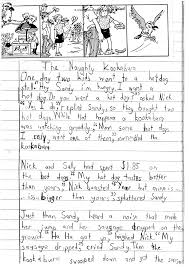 The Naughty Kookaburra
One day two kids went to a hotdog
stall. Hey Sandy I'm hungry, I want a
hot dog. Do you want a hot dog? asked Nick
"Yes I do" replied Sandy, so they bought two
hot dogs. While that happened a kookaburra
was watching greedily, "Mmm some hot dogs
I really want one of them" wondered the
kookaburra
Nick and Sally had spent $1.85 on
the hot dogs. "My hot dog tastes better
than yours," Nick boasted "Yeah but mine is
bigger than yours" spluttered Sandy
Just than Sandy heard a noise that made
her jump and her sausage dropped on the
ground. Ha Ha got you teased Nick "My
sausage dropped," cried Sandy. Then the
kookaburra swooped down and got the sausage